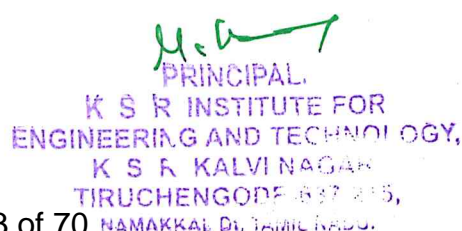 PRINCIPAL.
K S R INSTITUTE FOR
ENGINEERING AND TECHNOLOGY,
K S R KALVI NAGAR
TIRUCHENGODE 637 215,
of 70 NAMAKKAL Dt. TAMIL NADU.